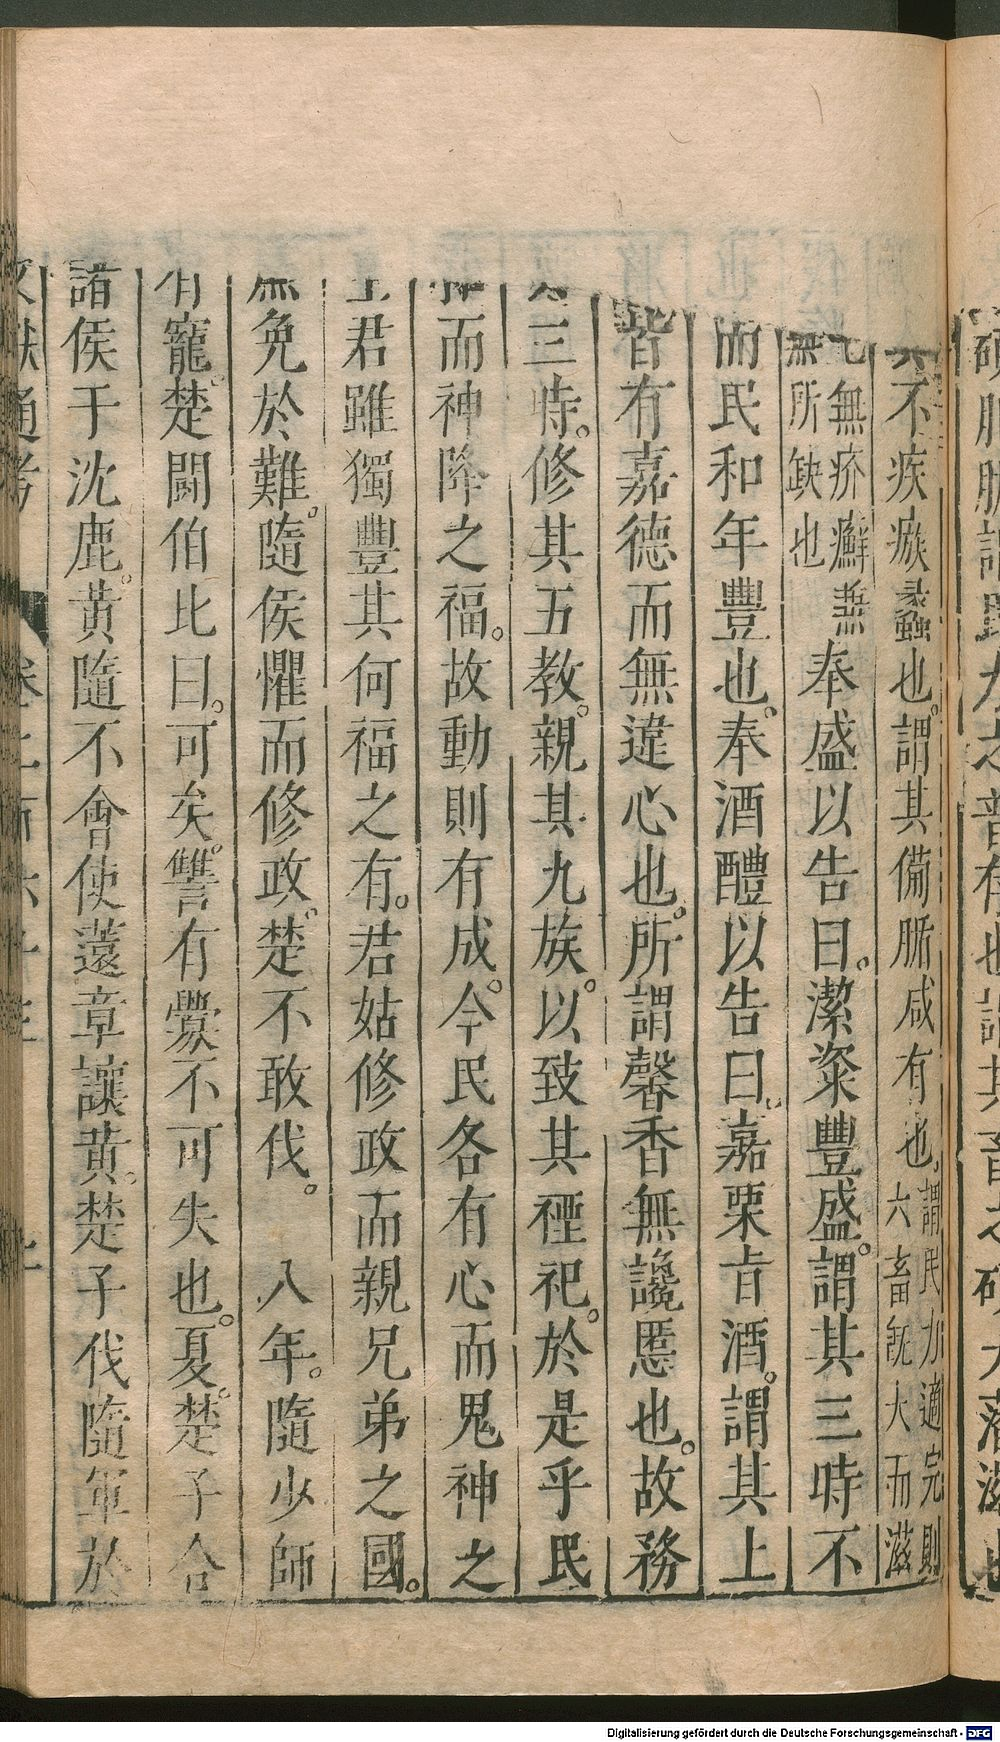 其不疾瘯蠡也。謂其備腯咸有也。謂民力適完則六畜旣大而滋
也無疥癬無所缺也奉盛以告曰。潔粢豐盛。謂其三時不
而民和年豐也。奉酒醴以告曰。嘉栗旨酒。謂其上
皆有嘉德而無違心也。所謂馨香無讒慝也。故務
三時。修其五教。親其九族。以致其禋祀。於是乎民
而神降之福。故動則有成。今民各有心而鬼神之
主君雖獨豐其何福之有。君姑修政而親兄弟之國。
無免於難。隨侯懼而修政。楚不敢伐。 八年。隨少師
有寵。楚鬭伯比曰。可矣。讐有釁不可失也。夏。楚子合
諸侯于沈鹿。黃隨不會使薳章讓黃。楚子伐隨軍於
文獻通考 卷二百六十
Digitalisierung gefördert durch die Deutsche Forschungsgemeinschaft - DFG